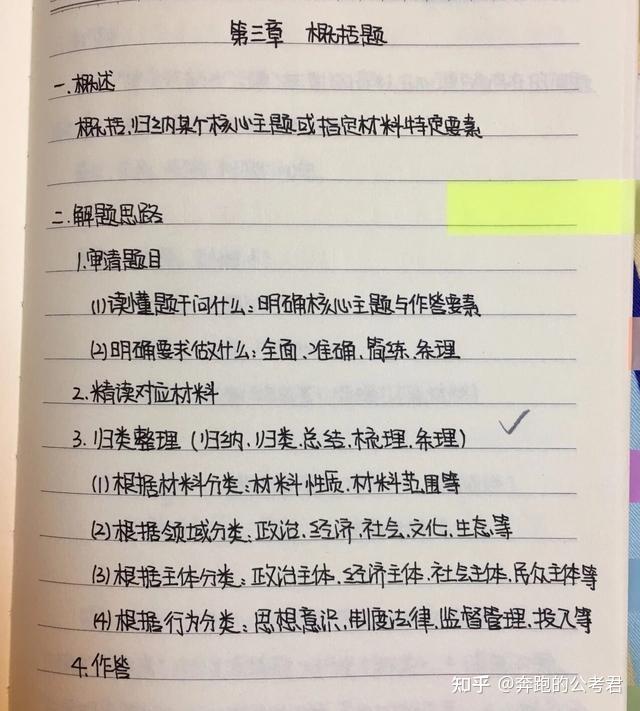 第三章 概括题
一.概述
概括,归纳某个核心主题或指定材料特定要素
二.解题思路
1.审清题目
(1)读懂题干问什么:明确核心主题与作答要素
(2)明确要求做什么:全面、准确、简练、条理
2.精读对应材料
3.归类整理(归纳、归类、总结、梳理、条理)
(1)根据材料分类:材料性质、材料范围等
(2)根据领域分类:政治、经济、社会、文化、生态等
(3)根据主体分类:政治主体、经济主体、社会主体、民众主体等
(4)根据行为分类:思想意识、制度法律、监督管理、投入等
4.作答
知乎 @奔跑的公考君